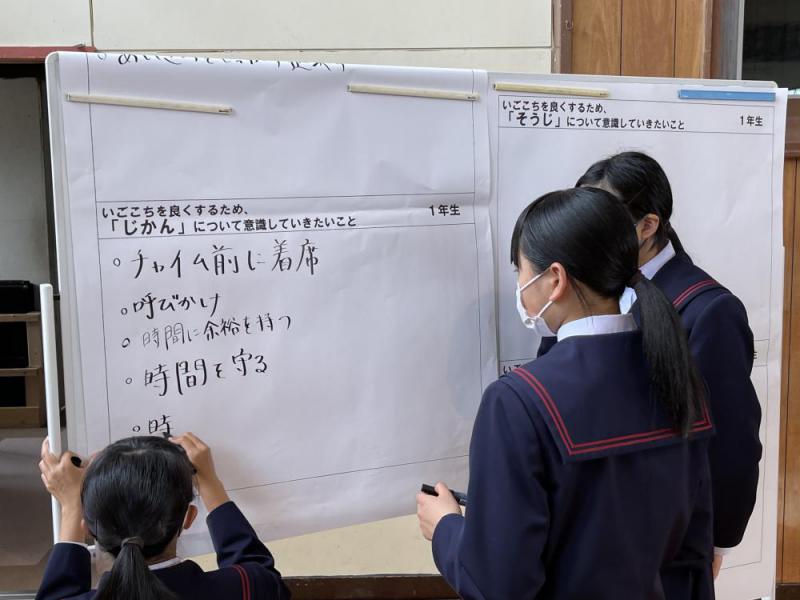 いごこちを良くするため、
「じかん」について意識していきたいこと 1年生
○チャイム前に着席
○呼びかけ
○時間に余裕を持つ
○時間を守る
○時
いごこちを良くするため、
「そうじ」について意識していきたいこと 1年生